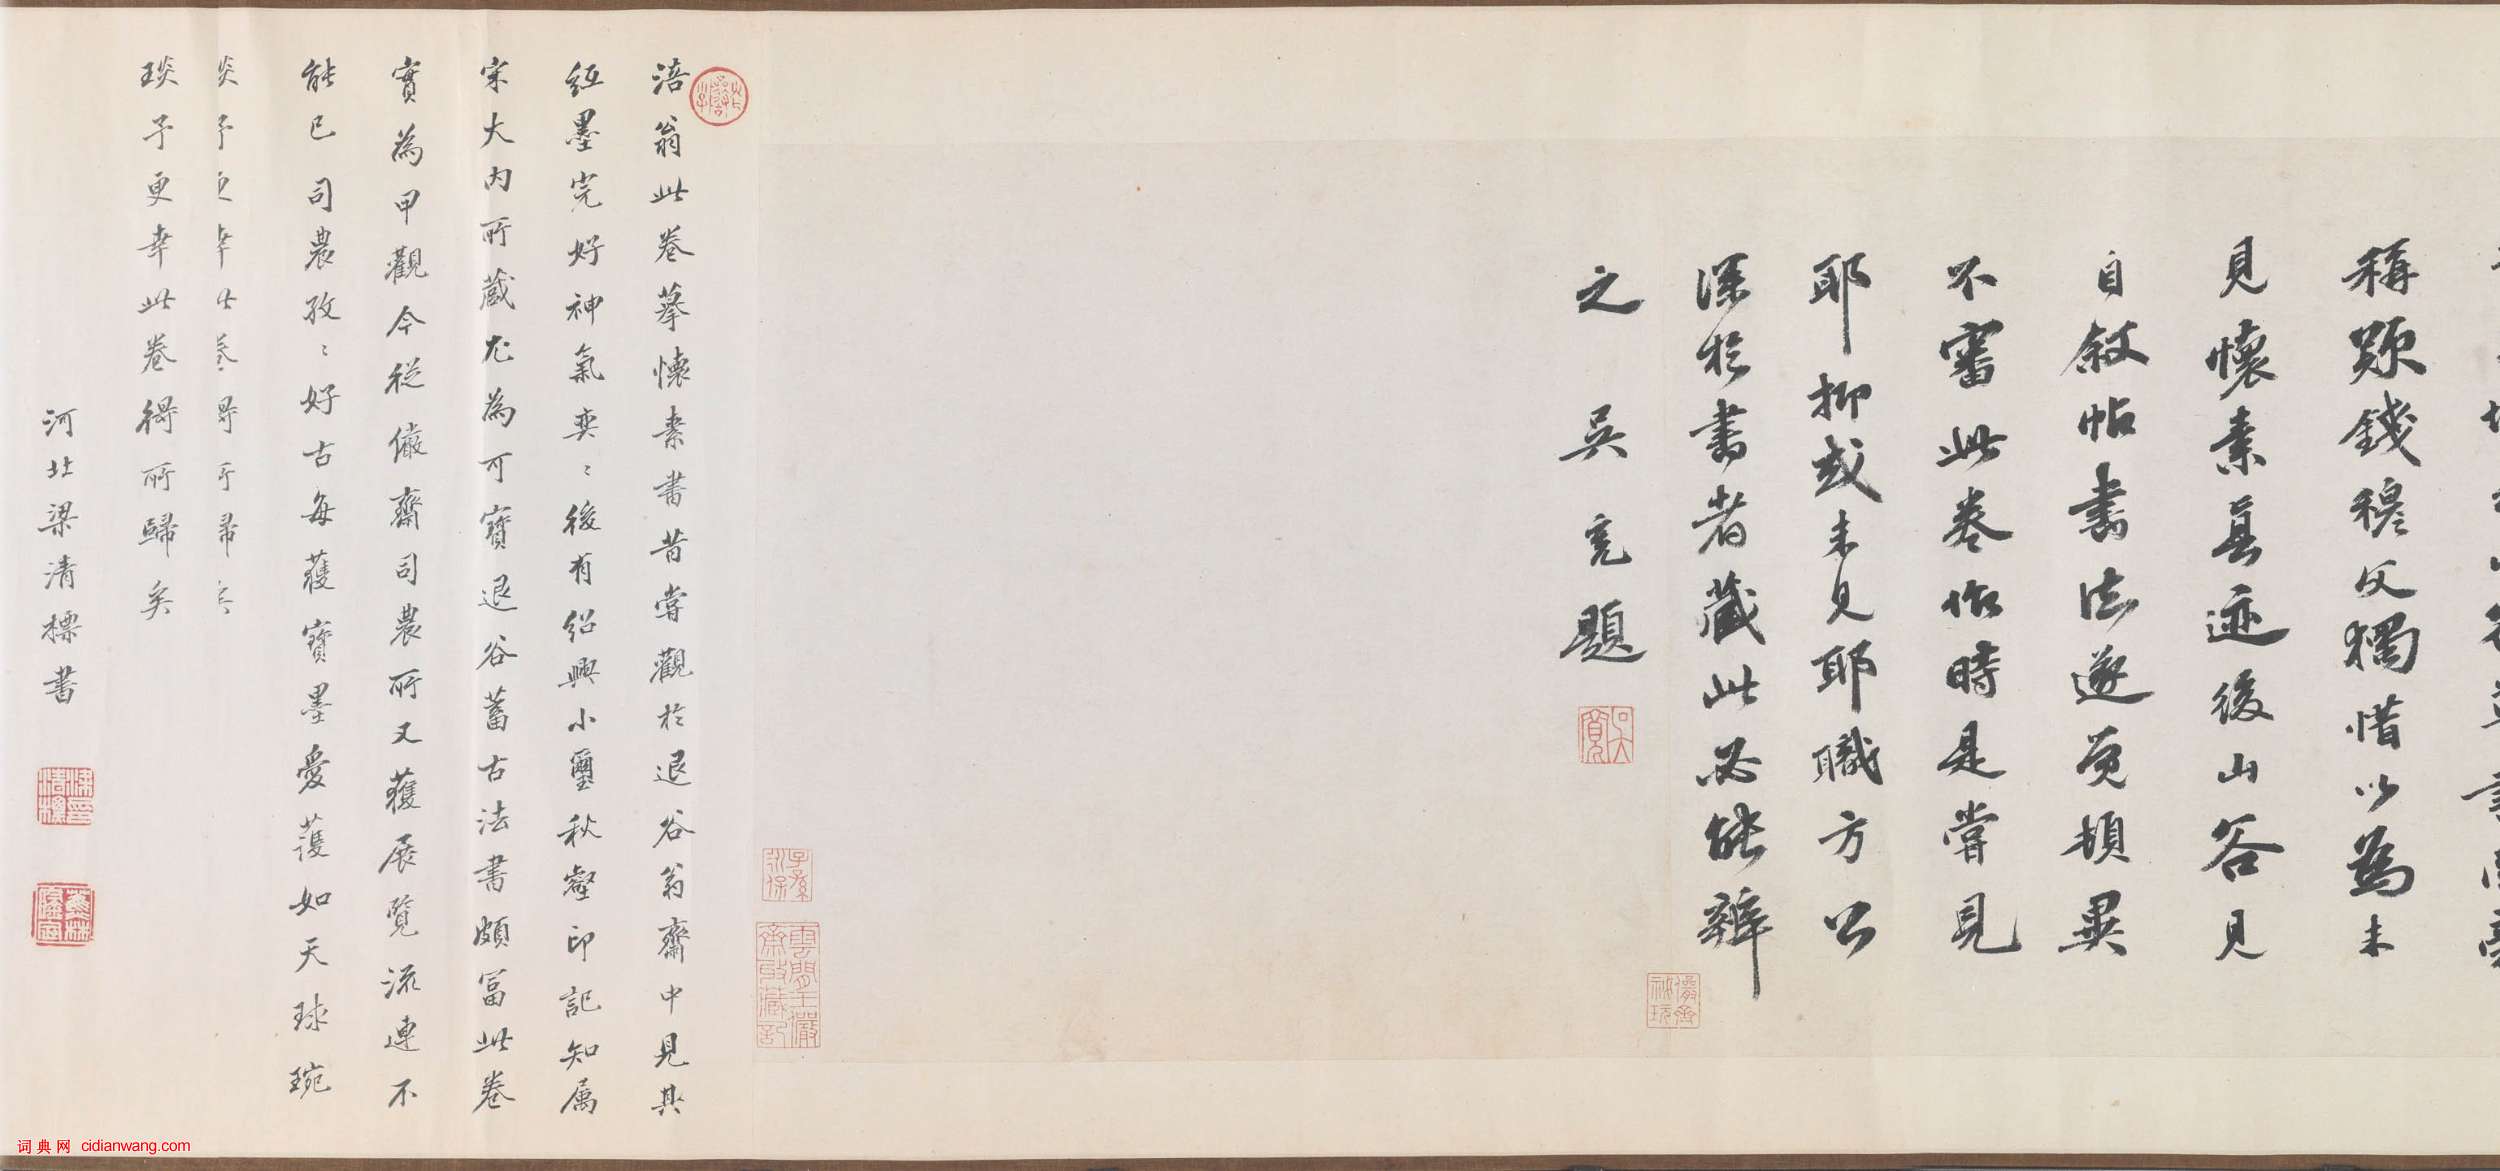 稱歎錢穆父獨惜以為未
見懷素真迹後山谷見
自敘帖書法遂覺頓異
不審此卷作時是嘗見
耶抑或未見耶職方公
深於書者藏此必能辨
之 吳寬題
儼齋秘玩
子孫永保
雲間王儼齋收藏記
涪翁此卷摹懷素書昔嘗觀於退谷翁齋中見其
紙墨完好神氣奕〻後有紹興小璽秋壑印記知属
宋大内所藏尤為可寶退谷蓄古法書頗富此卷
實為甲觀今從儼齋司農所又獲展覽流連不
能已司農孜〻好古每獲寶墨愛護如天球琬
琰予更幸此卷得所歸矣
河北梁清標書
词典网 cidianwang.com